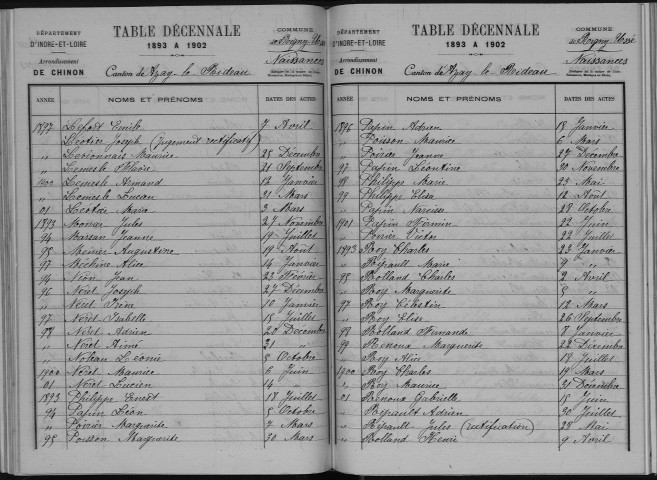 DÉPARTEMENT
D'INDRE-ET-LOIRE
Arrondissement
DE CHINON
TABLE DÉCENNALE
1893 A 1902
Canton de Azay le Rideau
COMMUNE
de Rigny Ussé
Naissances
ANNÉE NOMS ET PRÉNOMS DATES DES ACTES
1897 Emile 7 Avril
" Joseph (Jugement rectificatif)
" Maurice 25 Décembre
" 21 Septembre
1900 Armand 12 Janvier
" Lucien 21 Mars
01 Marie 3 Mars
1893 Jules 27 Novembre
94 Marsan Jeanne 19 Juillet
95 Augustine 14 Août
97 Alice 14 Janvier
94 Jean 23 Février
96 Noël Joseph 27 Décembre
" Noël 10 Janvier
97 Noël Isabelle 15 Juillet
98 Noël Adrien 20 Décembre
" Noël Aimé 21 "
" Léonie 8 Octobre
1900 Noël Maurice 6 Juin
01 Noël Lucien 14 "
1893 Philippe Ernest 17 Juillet
94 Papin Léon 5 Octobre
" Poirier Marguerite 7 Mars
95 Poisson Marguerite 30 Mars
DÉPARTEMENT
D'INDRE-ET-LOIRE
Arrondissement
DE CHINON
TABLE DÉCENNALE
1893 A 1902
Canton de Azay le Rideau
COMMUNE
de Rigny Ussé
Naissances
ANNÉE NOMS ET PRÉNOMS DATES DES ACTES
1896 Papin Adrien 18 Janvier
" Poisson Maurice 6 Mars
" Poirier Jeanne 27 Décembre
97 Papin Léontine 30 Novembre
98 Philippe Marie 23 Mai
99 Philippe Elisa 12 Août
" Papin Narcisse 18 Octobre
1901 Papin Firmin 22 Juin
" Poirier Victor 22 Juillet
1893 Roy Charles 23 Janvier
" Marie
95 Rolland Charles 2 Avril
" Roy Marguerite
97 Roy Célestin 12 Mars
" Roy Elise 26 Septembre
98 Rolland Fernande 8 Janvier
99 Renoux Marguerite 22 Décembre
" Roy Alice 18 Juillet
1900 Roy Charles 19 Mars
" Roy Maurice 31 Décembre
01 Renoux Gabrielle 15 Juin
" Adrien 30 Juillet
" Jules (rectification) 28 Mai
" Rolland Henri 9 Avril